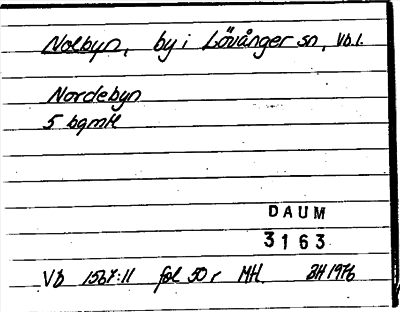 Nolbyn, by i Lövånger sn, Vb.l.
Nordebyn
5 bgmH
DAUM
3163
Vb 1567:11 fol 50 r MH. BH 1976